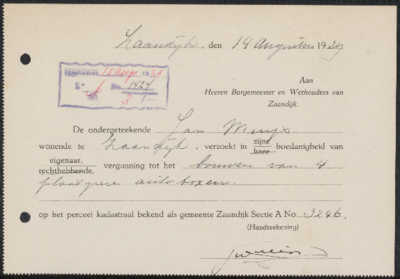 Zaandijk, den 14 Augustus 1929
Aan
Heeren Burgemeester en Wethouders van
Zaandijk.
12 Aug. 1929
No. 1424
De ondergeteekende Jan
wonende te Zaandijk, verzoekt in zijne hare hoedanigheid van
eigenaar, rechthebbende, vergunning tot het bouwen van 4
autoboxen
op het perceel kadastraal bekend als gemeente Zaandijk Sectie A No. 3246.
(Handteekening)